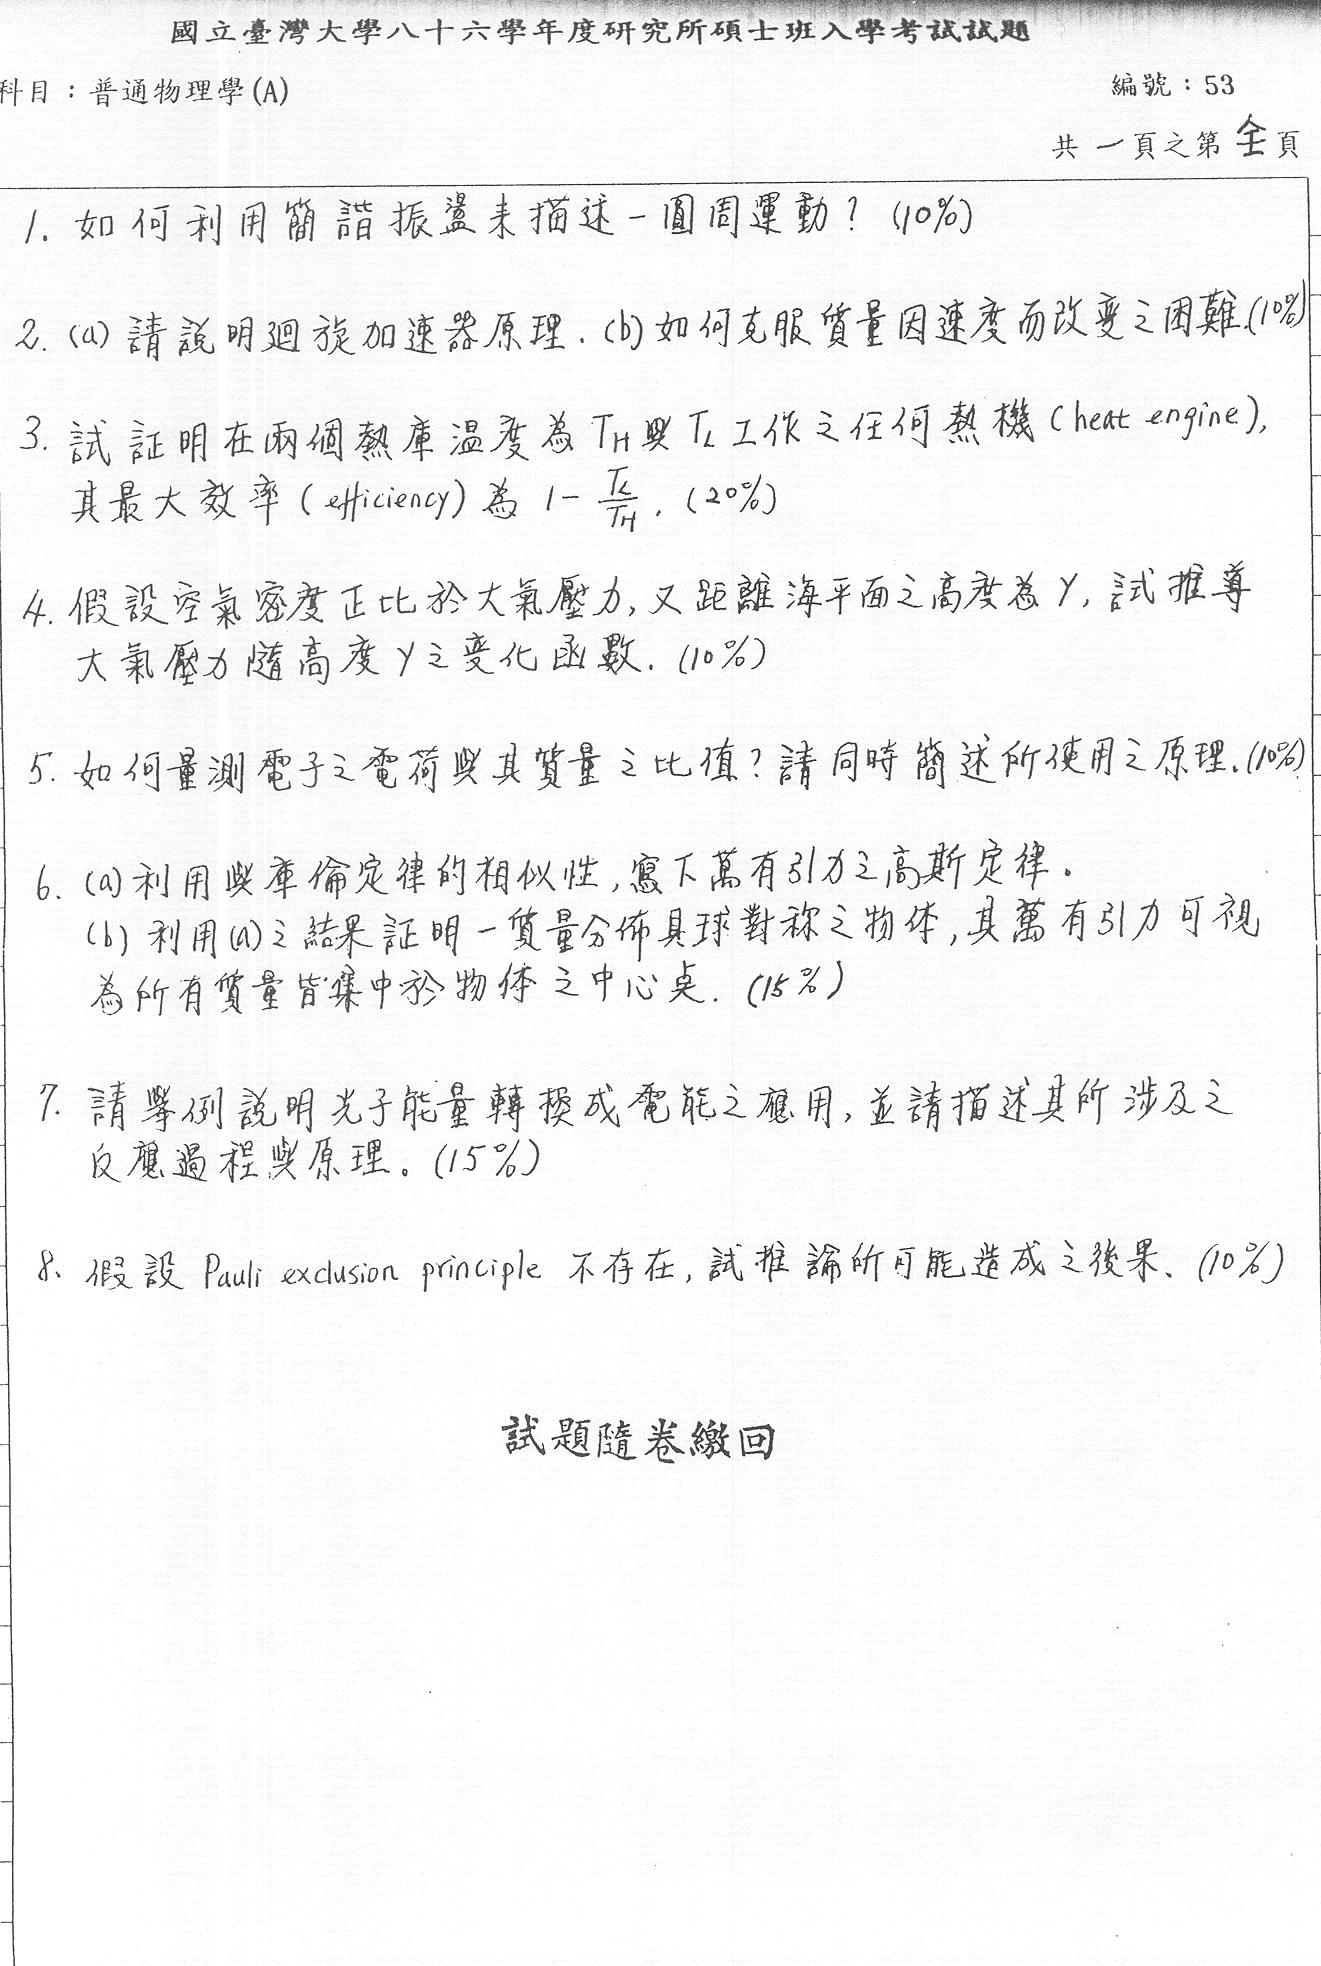 國立臺灣大學八十六學年度研究所碩士班入學考試試題
科目：普通物理學(A)
編號：53
共一頁之第全頁
1. 如何利用簡諧振盪來描述一圓周運動？(10%)
2. (a) 請說明迴旋加速器原理. (b) 如何克服質量因速度而改变之困難.(10%)
3. 試証明在兩個熱庫温度為 TH 與 TL 工作之任何熱機 (heat engine),
其最大效率 (efficiency) 為 1 - TL/TH. (20%)
4. 假設空氣密度正比於大氣壓力, 又距離海平面之高度為 y, 試推導
大氣壓力隨高度 y 之变化函數. (10%)
5. 如何量測電子之電荷與其質量之比值？請同時簡述所使用之原理.(10%)
6. (a) 利用與庫倫定律的相似性, 寫下萬有引力之高斯定律。
(b) 利用(a)之結果証明一質量分佈具球對称之物体, 其萬有引力可視
為所有質量皆集中於物体之中心点. (15%)
7. 請舉例說明光子能量轉換成電能之應用, 並請描述其所涉及之
反應過程與原理。(15%)
8、假設 Pauli exclusion principle 不存在, 試推論所可能造成之後果、(10%)
試題隨卷繳回